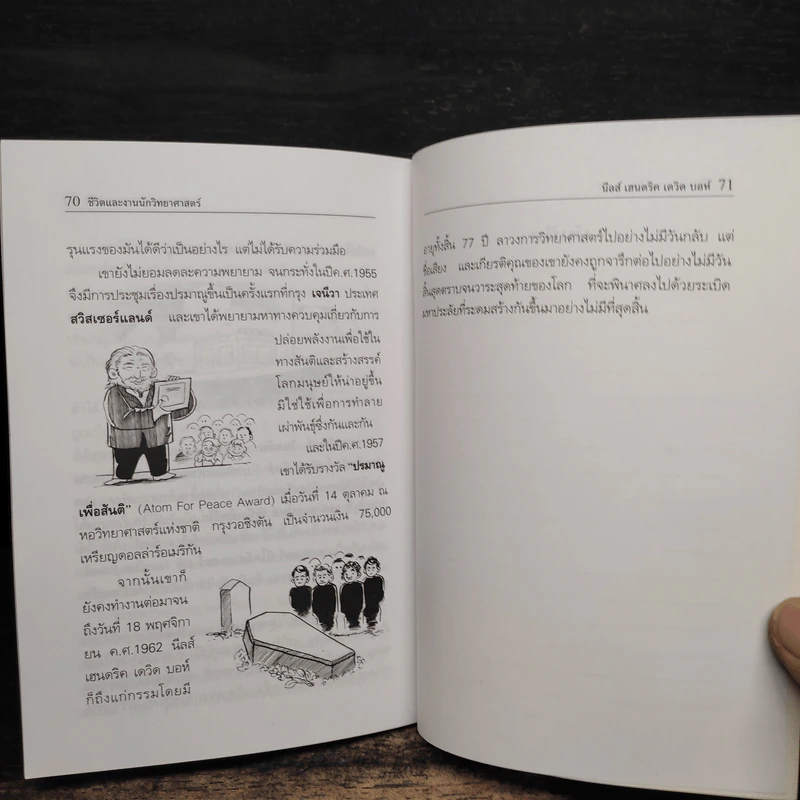 70 ชีวิตและงานนักวิทยาศาสตร์
รุนแรงของมันได้ดีว่าเป็นอย่างไร แต่ไม่ได้รับความร่วมมือ
เขายังไม่ยอมลดละความพยายาม จนกระทั่งในปีค.ศ.1955
จึงมีการประชุมเรื่องปรมาณูขึ้นเป็นครั้งแรกที่กรุง เจนีวา ประเทศ
สวิสเซอร์แลนด์ และเขาได้พยายามหาทางควบคุมเกี่ยวกับการ
ปล่อยพลังงานเพื่อใช้ใน
ทางสันติและสร้างสรรค์
โลกมนุษย์ให้น่าอยู่ขึ้น
มิใช่ใช้เพื่อการทำลาย
เผ่าพันธุ์ซึ่งกันและกัน
และในปีค.ศ.1957
เขาได้รับรางวัล "ปรมาณู
เพื่อสันติ" (Atom For Peace Award) เมื่อวันที่ 14 ตุลาคม ณ
หอวิทยาศาสตร์แห่งชาติ กรุงวอชิงตัน เป็นจำนวนเงิน 75,000
เหรียญดอลล่าร์อเมริกัน
จากนั้นเขาก็
ยังคงทำงานต่อมาจน
ถึงวันที่ 18 พฤศจิกา
ยน ค.ศ.1962 นีลส์
เฮนดริค เดวิด บอห์
ก็ถึงแก่กรรมโดยมี
นีลส์ เฮนดริค เดวิด บอห์ 71
อายุทั้งสิ้น 77 ปี ลาวงการวิทยาศาสตร์ไปอย่างไม่มีวันกลับ แต่
ชื่อเสียง และเกียรติคุณของเขายังคงถูกจารึกต่อไปอย่างไม่มีวัน
สิ้นสุดตราบจนวาระสุดท้ายของโลก ที่จะพินาศลงไปด้วยระเบิด
มหาประลัยที่ระดมสร้างกันขึ้นมาอย่างไม่มีที่สุดสิ้น